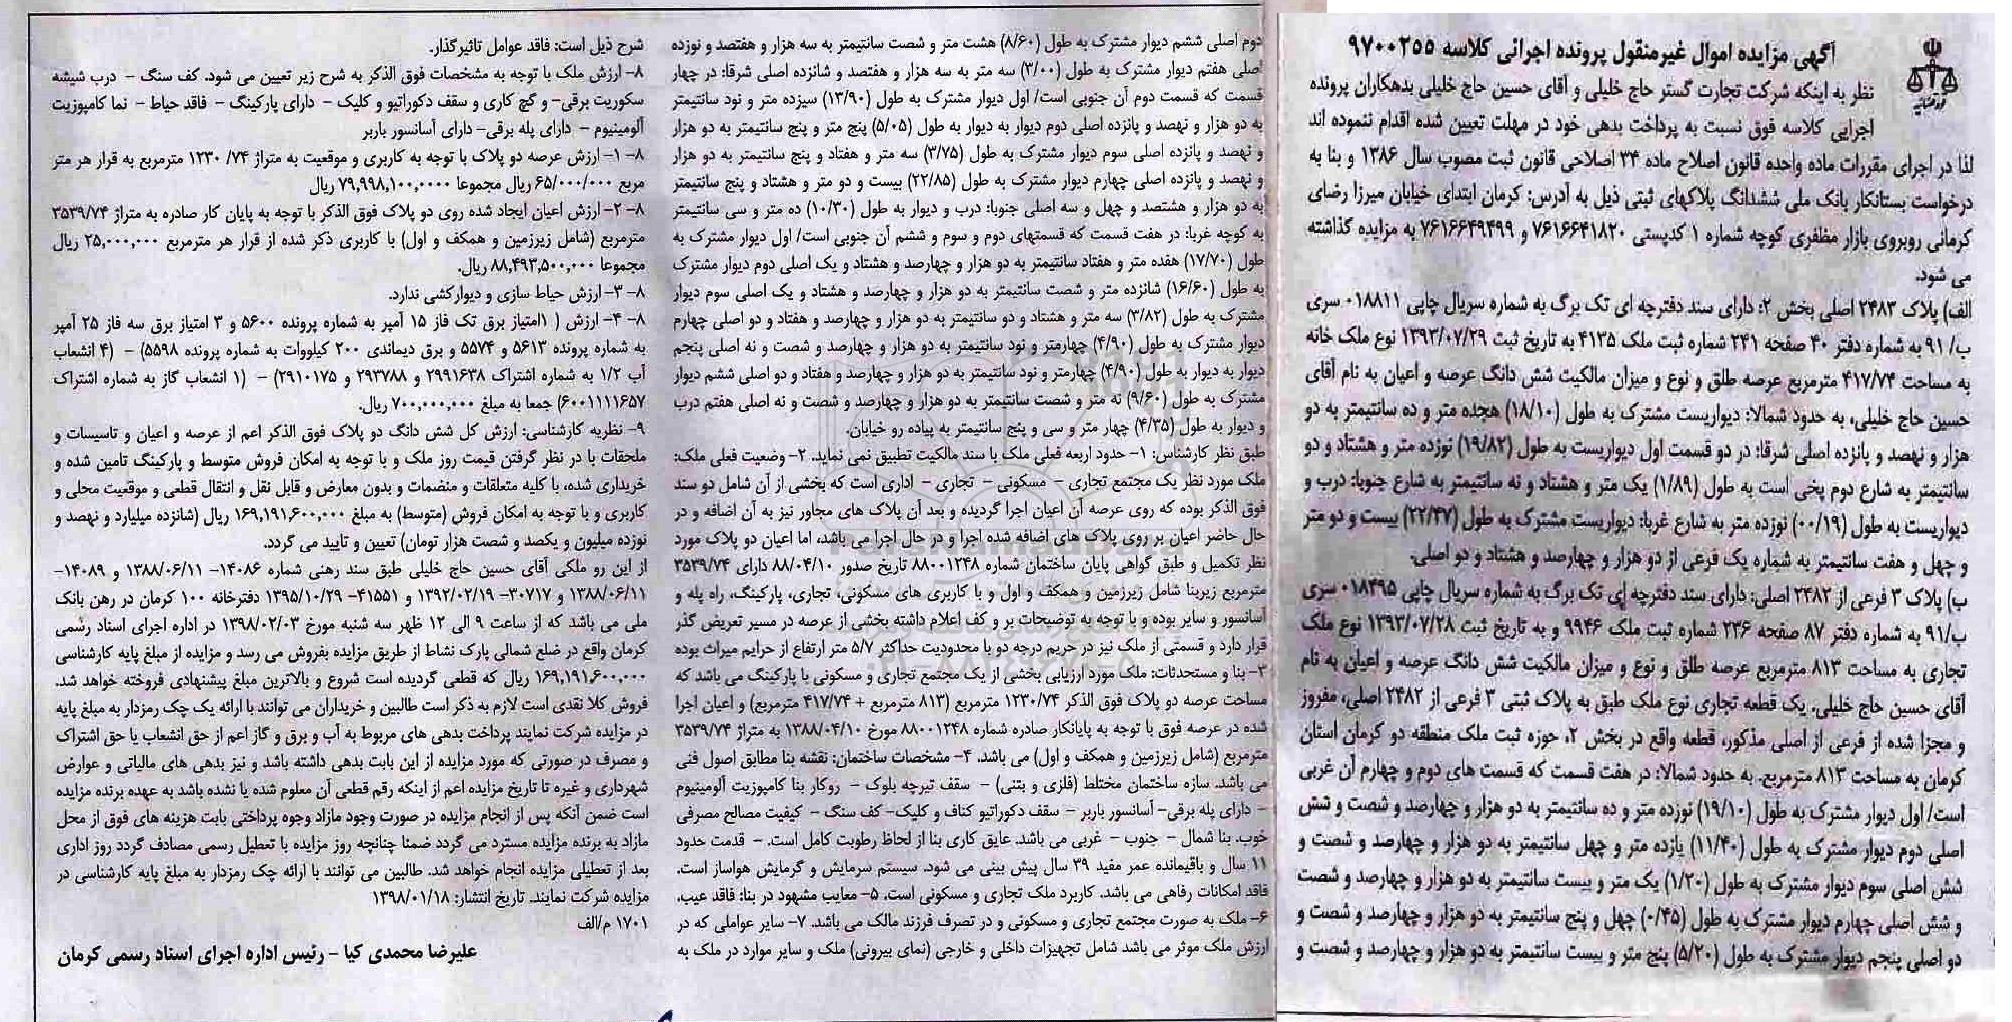 آگهی مزایده اموال غیرمنقول پرونده اجرائی کلاسه ۹۷۰۰۲۵۵
نظر به اینکه شرکت تجارت گستر حاج خلیلی و آقای حسین حاج خلیلی بدهکاران پرونده
اجرایی کلاسه فوق نسبت به پرداخت بدهی خود در مهلت تعیین شده اقدام ننموده اند
لذا در اجرای مقررات ماده واحده قانون اصلاح ماده ۳۴ اصلاحی قانون ثبت مصوب سال ۱۳۸۶ و بنا به
درخواست بستانکار بانک ملی ششدانگ پلاکهای ثبتی ذیل به آدرس: کرمان ابتدای خیابان میرزا رضای
کرمانی روبروی بازار مظفری کوچه شماره ۱ کدپستی ۷۶۱۶۶۴۱۸۲۰ و ۷۶۱۶۶۴۹۴۹۹ به مزایده گذاشته
می شود.
الف) پلاک ۲۴۸۳ اصلی بخش ۲: دارای سند دفترچه ای تک برگ به شماره سریال چاپی ۰۱۸۸۱۱ سری
ب/ ۹۱ به شماره دفتر ۴۰ صفحه ۲۴۱ شماره ثبت ملک ۴۱۳۵ به تاریخ ثبت ۱۳۹۳/۰۷/۲۹ نوع ملک خانه
به مساحت ۴۱۷/۷۴ مترمربع عرصه طلق و نوع و میزان مالکیت شش دانگ عرصه و اعیان به نام آقای
حسین حاج خلیلی، به حدود شمالا: دیواریست مشترک به طول (۱۸/۱۰) هجده متر و ده سانتیمتر به دو
هزار و نهصد و پانزده اصلی شرقا: در دو قسمت اول دیواریست به طول (۱۹/۸۲) نوزده متر و هشتاد و دو
سانتیمتر به شارع دوم پخی است به طول (۱/۸۹) یک متر و هشتاد و نه سانتیمتر به شارع جنوبا: درب و
دیواریست به طول (۰۰/۱۹) نوزده متر به شارع غربا: دیواریست مشترک به طول (۲۲/۴۷) بیست و دو متر
و چهل و هفت سانتیمتر به شماره یک فرعی از دو هزار و چهارصد و هشتاد و دو اصلی.
ب) پلاک ۳ فرعی از ۲۴۸۲ اصلی: دارای سند دفترچه ای تک برگ به شماره سریال چاپی ۰۱۸۴۹۵ سری
ب/۹۱ به شماره دفتر ۸۷ صفحه ۲۳۶ شماره ثبت ملک ۹۹۴۶ و به تاریخ ثبت ۱۳۹۳/۰۷/۲۸ نوع ملک
تجاری به مساحت ۸۱۳ مترمربع عرصه طلق و نوع و میزان مالکیت شش دانگ عرصه و اعیان به نام
آقای حسین حاج خلیلی. یک قطعه تجاری نوع ملک طبق به پلاک ثبتی ۳ فرعی از ۲۴۸۲ اصلی، مفروز
و مجزا شده از فرعی از اصلی مذکور، قطعه واقع در بخش ۲، حوزه ثبت ملک منطقه دو کرمان استان
کرمان به مساحت ۸۱۳ مترمربع. به حدود شمالا: در هفت قسمت که قسمت های دوم و چهارم آن غربی
است/ اول دیوار مشترک به طول (۱۹/۱۰) نوزده متر و ده سانتیمتر به دو هزار و چهارصد و شصت و شش
اصلی دوم دیوار مشترک به طول (۱۱/۴۰) یازده متر و چهل سانتیمتر به دو هزار و چهارصد و شصت و
شش اصلی سوم دیوار مشترک به طول (۱/۲۰) یک متر و بیست سانتیمتر به دو هزار و چهارصد و شصت
و شش اصلی چهارم دیوار مشترک به طول (۰/۴۵) چهل و پنج سانتیمتر به دو هزار و چهارصد و شصت و
دو اصلی پنجم دیوار مشترک به طول (۵/۲۰) پنج متر و بیست سانتیمتر به دو هزار و چهارصد و شصت و
دوم اصلی ششم دیوار مشترک به طول (۸/۶۰) هشت متر و شصت سانتیمتر به سه هزار و هفتصد و نوزده
اصلی هفتم دیوار مشترک به طول (۳/۰۰) سه متر به سه هزار و هفتصد و شانزده اصلی شرقا: در چهار
قسمت که قسمت دوم آن جنوبی است/ اول دیوار مشترک به طول (۱۳/۹۰) سیزده متر و نود سانتیمتر
به دو هزار و نهصد و پانزده اصلی دوم دیوار به دیوار به طول (۵/۰۵) پنج متر و پنج سانتیمتر به دو هزار
و نهصد و پانزده اصلی سوم دیوار مشترک به طول (۳/۷۵) سه متر و هفتاد و پنج سانتیمتر به دو هزار
و نهصد و پانزده اصلی چهارم دیوار مشترک به طول (۲۲/۸۵) بیست و دو متر و هشتاد و پنج سانتیمتر
به دو هزار و هشتصد و چهل و سه اصلی جنوبا: درب و دیوار به طول (۱۰/۳۰) ده متر و سی سانتیمتر
به کوچه غربا: در هفت قسمت که قسمتهای دوم و سوم و ششم آن جنوبی است/ اول دیوار مشترک به
طول (۱۷/۷۰) هفده متر و هفتاد سانتیمتر به دو هزار و چهارصد و هشتاد و یک اصلی دوم دیوار مشترک
به طول (۱۶/۶۰) شانزده متر و شصت سانتیمتر به دو هزار و چهارصد و هشتاد و یک اصلی سوم دیوار
مشترک به طول (۳/۸۲) سه متر و هشتاد و دو سانتیمتر به دو هزار و چهارصد و هفتاد و دو اصلی چهارم
دیوار مشترک به طول (۴/۹۰) چهارمتر و نود سانتیمتر به دو هزار و چهارصد و شصت و نه اصلی پنجم
دیوار به دیوار به طول (۴/۹۰) چهارمتر و نود سانتیمتر به دو هزار و چهارصد و هفتاد و دو اصلی ششم دیوار
مشترک به طول (۹/۶۰) نه متر و شصت سانتیمتر به دو هزار و چهارصد و شصت و نه اصلی هفتم درب
و دیوار به طول (۴/۳۵) چهار متر و سی و پنج سانتیمتر به پیاده رو خیابان.
طبق نظر کارشناس: ۱- حدود اربعه فعلی ملک با سند مالکیت تطبیق نمی نماید. ۲- وضعیت فعلی ملک:
ملک مورد نظر یک مجتمع تجاری – مسکونی – تجاری – اداری است که بخشی از آن شامل دو سند
فوق الذکر بوده که روی عرصه آن اعیان اجرا گردیده و بعد آن پلاک های مجاور نیز به آن اضافه و در
حال حاضر اعیان بر روی پلاک های اضافه شده اجرا و در حال اجرا می باشد، اما اعیان دو پلاک مورد
نظر تکمیل و طبق گواهی پایان ساختمان شماره ۸۸۰۰۱۲۴۸ تاریخ صدور ۸۸/۰۴/۱۰ دارای ۳۵۳۹/۷۴
مترمربع زیربنا شامل زیرزمین و همکف و اول و با کاربری های مسکونی، تجاری، پارکینگ، راه پله و
آسانسور و سایر بوده و با توجه به توضیحات بر و کف اعلام داشته بخشی از عرصه در مسیر تعریض گذر
قرار دارد و قسمتی از ملک نیز در حریم درجه دو با محدودیت حداکثر ۵/۷ متر ارتفاع از حرایم میراث بوده
۳- بنا و مستحدثات: ملک مورد ارزیابی بخشی از یک مجتمع تجاری و مسکونی با پارکینگ می باشد که
مساحت عرصه دو پلاک فوق الذکر ۱۲۳۰/۷۴ مترمربع (۸۱۳ مترمربع + ۴۱۷/۷۴ مترمربع) و اعیان اجرا
شده در عرصه فوق با توجه به پایانکار صادره شماره ۸۸۰۰۱۲۴۸ مورخ ۱۳۸۸/۰۴/۱۰ به متراژ ۳۵۳۹/۷۴
مترمربع (شامل زیرزمین و همکف و اول) می باشد. ۴- مشخصات ساختمان: نقشه بنا مطابق اصول فنی
می باشد. سازه ساختمان مختلط (فلزی و بتنی) – سقف تیرچه بلوک – روکار بنا کامپوزیت آلومینیوم
– دارای پله برقی- آسانسور باربر – سقف دکوراتیو کناف و کلیک- کف سنگ – کیفیت مصالح مصرفی
خوب. بنا شمال – جنوب – غربی می باشد. عایق کاری بنا از لحاظ رطوبت کامل است. – قدمت حدود
۱۱ سال و باقیمانده عمر مفید ۳۹ سال پیش بینی می شود. سیستم سرمایش و گرمایش هواساز است.
فاقد امکانات رفاهی می باشد. کاربرد ملک تجاری و مسکونی است. ۵- معایب مشهود در بنا: فاقد عیب.
۶- ملک به صورت مجتمع تجاری و مسکونی و در تصرف فرزند مالک می باشد. ۷- سایر عواملی که در
ارزش ملک موثر می باشد شامل تجهیزات داخلی و خارجی (نمای بیرونی) ملک و سایر موارد در ملک به
شرح ذیل است: فاقد عوامل تاثیرگذار.
۸- ارزش ملک با توجه به مشخصات فوق الذکر به شرح زیر تعیین می شود. کف سنگ – درب شیشه
سکوریت برقی- و گچ کاری و سقف دکوراتیو و کلیک – دارای پارکینگ – فاقد حیاط – نما کامپوزیت
آلومینیوم – دارای پله برقی- دارای آسانسور باربر
۸- ۱- ارزش عرصه دو پلاک با توجه به کاربری و موقعیت به متراژ ۷۴/ ۱۲۳۰ مترمربع به قرار هر متر
مربع ۶۵/۰۰۰/۰۰۰ ریال مجموعا ۷۹,۹۹۸,۱۰۰,۰۰۰۰ ریال
۸- ۲- ارزش اعیان ایجاد شده روی دو پلاک فوق الذکر با توجه به پایان کار صادره به متراژ ۳۵۳۹/۷۴
مترمربع (شامل زیرزمین و همکف و اول) با کاربری ذکر شده از قرار هر مترمربع ۲۵,۰۰۰,۰۰۰ ریال
مجموعا ۸۸,۴۹۳,۵۰۰,۰۰۰ ریال.
۸- ۳- ارزش حیاط سازی و دیوارکشی ندارد.
۸- ۴- ارزش ( ۱امتیاز برق تک فاز ۱۵ آمپر به شماره پرونده ۵۶۰۰ و ۳ امتیاز برق سه فاز ۲۵ آمپر
به شماره پرونده ۵۶۱۳ و ۵۵۷۴ و برق دیماندی ۲۰۰ کیلووات به شماره پرونده ۵۵۹۸) – (۴ انشعاب
آب ۱/۲ به شماره اشتراک ۲۹۹۱۶۳۸ و ۲۹۳۷۸۸ و ۲۹۱۰۱۷۵) – (۱ انشعاب گاز به شماره اشتراک
۶۰۰۱۱۱۱۶۵۷) جمعا به مبلغ ۷۰۰,۰۰۰,۰۰۰ ریال.
۹- نظریه کارشناسی: ارزش کل شش دانگ دو پلاک فوق الذکر اعم از عرصه و اعیان و تاسیسات و
ملحقات با در نظر گرفتن قیمت روز ملک و با توجه به امکان فروش متوسط و پارکینگ تامین شده و
خریداری شده، با کلیه متعلقات و منضمات و بدون معارض و قابل نقل و انتقال قطعی و موقعیت محلی و
کاربری و با توجه به امکان فروش (متوسط) به مبلغ ۱۶۹,۱۹۱,۶۰۰,۰۰۰ ریال (شانزده میلیارد و نهصد و
نوزده میلیون و یکصد و شصت هزار تومان) تعیین و تایید می گردد.
از این رو ملکی آقای حسین حاج خلیلی طبق سند رهنی شماره ۱۴۰۸۶- ۱۳۸۸/۰۶/۱۱ و ۱۴۰۸۹-
۱۳۸۸/۰۶/۱۱ و ۳۰۷۱۷- ۱۳۹۲/۰۲/۱۹ و ۴۱۵۵۱- ۱۳۹۵/۱۰/۲۹ دفترخانه ۱۰۰ کرمان در رهن بانک
ملی می باشد که از ساعت ۹ الی ۱۲ ظهر سه شنبه مورخ ۱۳۹۸/۰۲/۰۳ در اداره اجرای اسناد رسمی
کرمان واقع در ضلع شمالی پارک نشاط از طریق مزایده بفروش می رسد و مزایده از مبلغ پایه کارشناسی
۱۶۹,۱۹۱,۶۰۰,۰۰۰ ریال که قطعی گردیده است شروع و بالاترین مبلغ پیشنهادی فروخته خواهد شد.
فروش کلا نقدی است لازم به ذکر است طالبین و خریداران می توانند با ارائه یک چک رمزدار به مبلغ پایه
در مزایده شرکت نمایند پرداخت بدهی های مربوط به آب و برق و گاز اعم از حق انشعاب یا حق اشتراک
و مصرف در صورتی که مورد مزایده از این بابت بدهی داشته باشد و نیز بدهی های مالیاتی و عوارض
شهرداری و غیره تا تاریخ مزایده اعم از اینکه رقم قطعی آن معلوم شده یا نشده باشد به عهده برنده مزایده
است ضمن آنکه پس از انجام مزایده در صورت وجود مازاد وجوه پرداختی بابت هزینه های فوق از محل
مازاد به برنده مزایده مسترد می گردد ضمنا چنانچه روز مزایده با تعطیل رسمی مصادف گردد روز اداری
بعد از تعطیلی مزایده انجام خواهد شد. طالبین می توانند با ارائه چک رمزدار به مبلغ پایه کارشناسی در
مزایده شرکت نمایند. تاریخ انتشار: ۱۳۹۸/۰۱/۱۸
۱۷۰۱ م/الف
علیرضا محمدی کیا – رئیس اداره اجرای اسناد رسمی کرمان